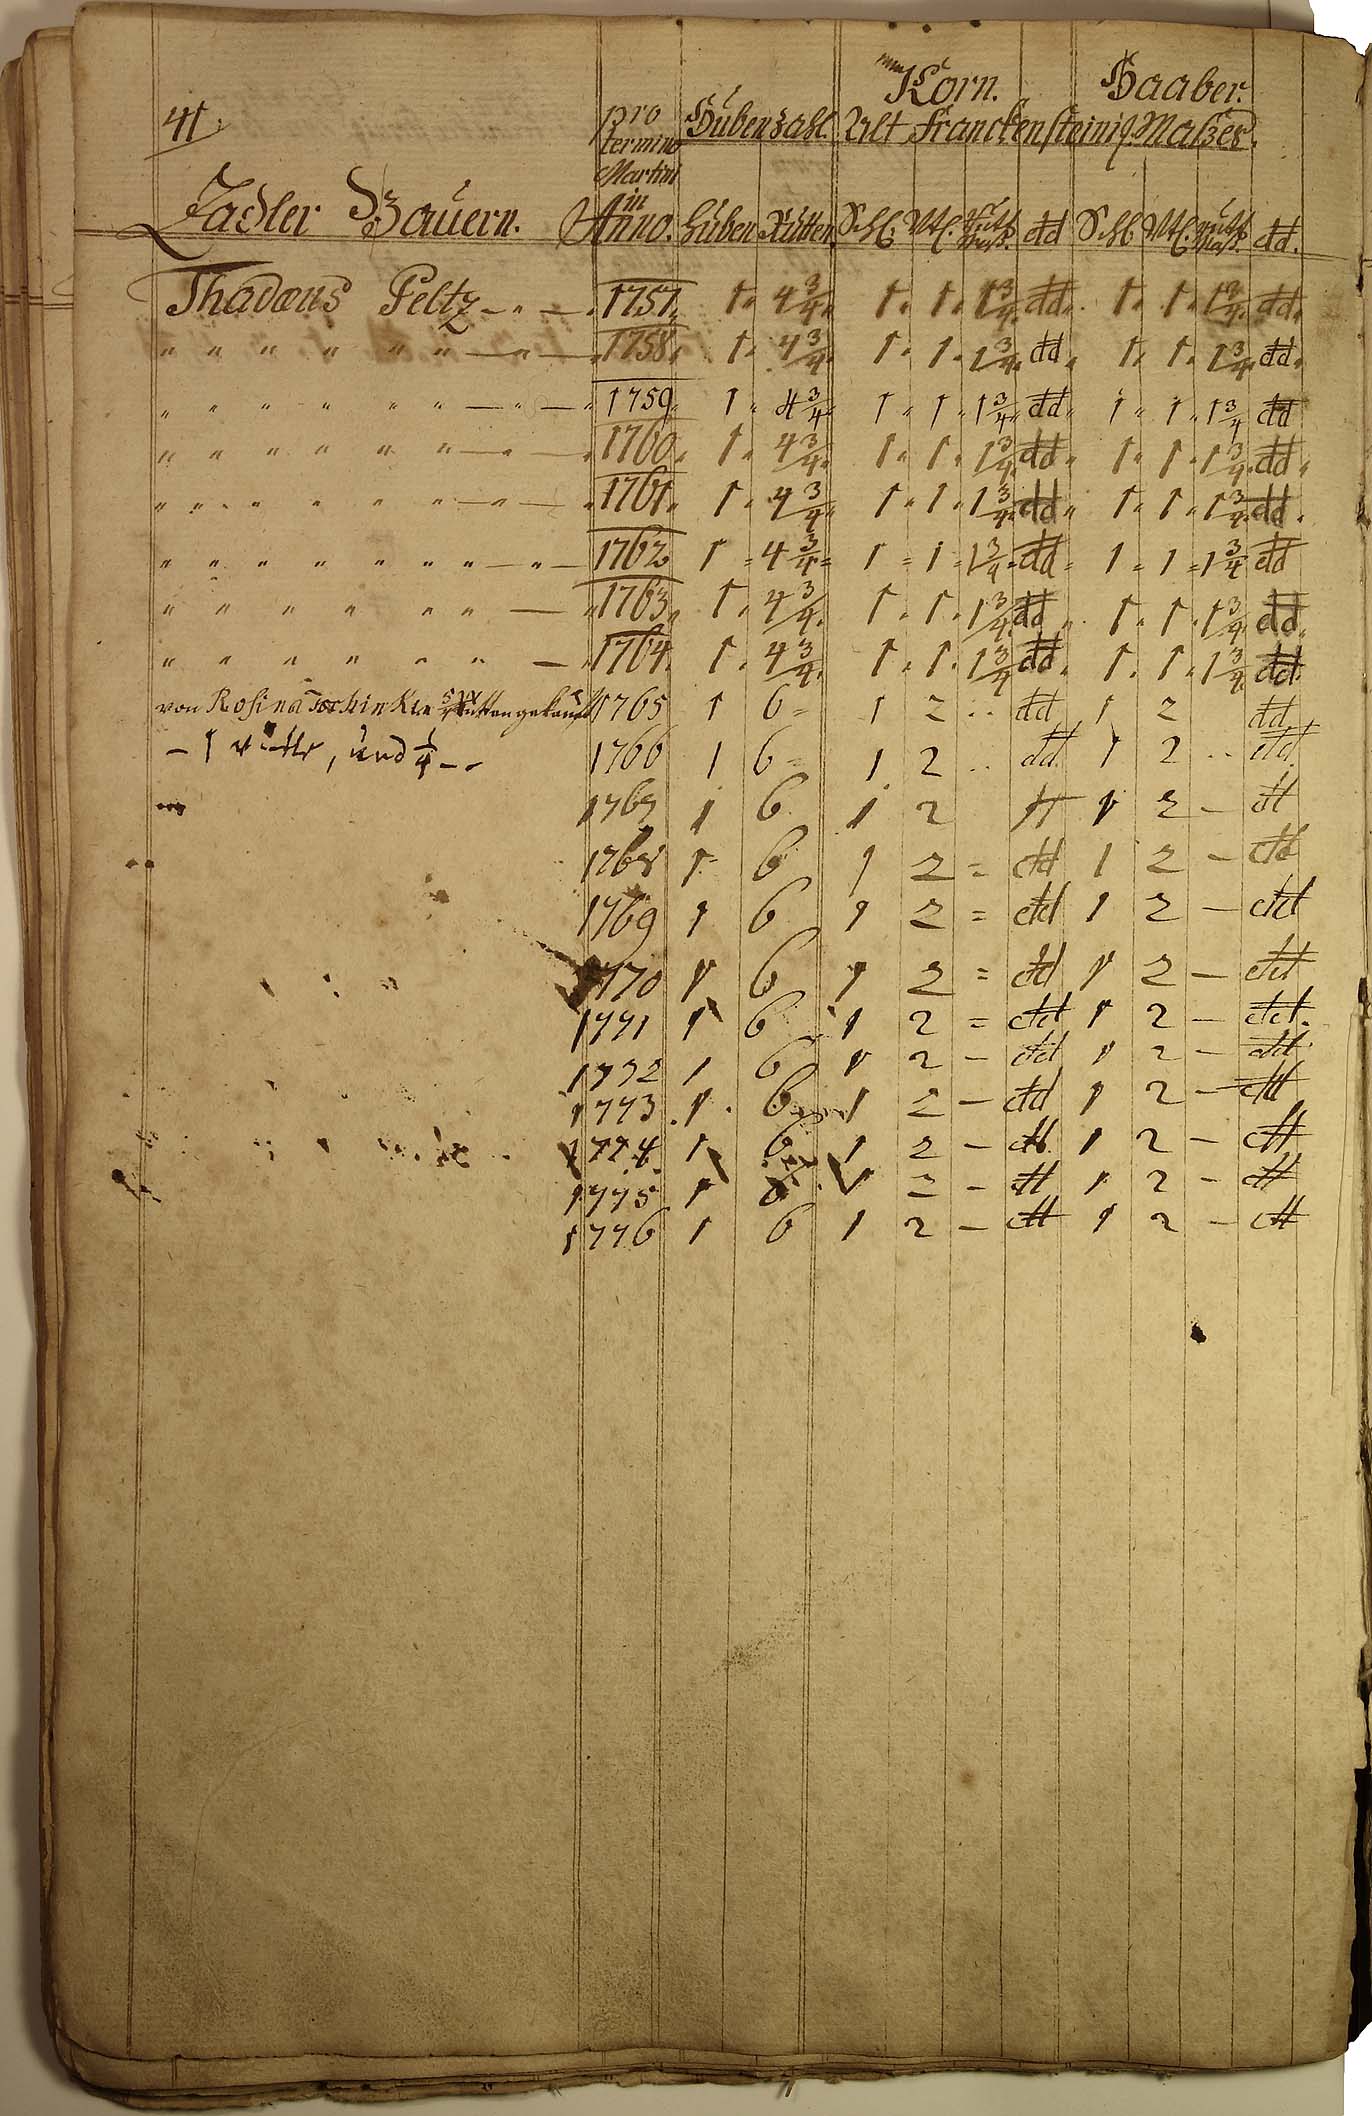 41.
Korn. Haaber.
pro termino Martini in Anno. Hubenzahl. Alt Franckensteinis. Malzes.
Zadler Bauern. Huben Rutten Schl. Vtl. dd Schl Vtl. dd.
Thadæus Peltz — " — 1757. 1 " 4 3/4. 1 " 1 " 1 3/4. dd. 1 " 1 " 1 3/4. dd.
" " " " " " — " — 1758. 1 " 4 3/4. 1 " 1 " 1 3/4. dd " 1 " 1 " 1 3/4. dd.
" " " " " " — " — " 1759. 1 " 4 3/4 " 1 " 1 " 1 3/4 " dd " 1 " 1 " 1 3/4 dd
" " " " " " — " — 1760. 1 " 4 3/4. 1 " 1 " 1 3/4. dd " 1 " 1 " 1 3/4. dd.
" " " " " " — " — 1761. 1 " 4 3/4. 1 " 1 " 1 3/4. dd " 1 " 1 " 1 3/4. dd.
" " " " " " " — " — 1762. 1 = 4 3/4 = 1 = 1 = 1 3/4 = dd = 1 = 1 = 1 3/4 dd
" " " " " " — " 1763. 1 " 4 3/4. 1 " 1 " 1 3/4. dd " 1 " 1 " 1 3/4. dd.
" " " " " " — 1764. 1 " 4 3/4. 1 " 1 " 1 3/4 dd " 1 " 1 " 1 3/4. dd.
von Rosina gekauft 1765 1 6 = 1 2 .. dd 1 2 dd
— 1 und 1/4 — 1766 1 6 = 1 2 .. dd 1 2 .. dd.
1767 1 6 1 2 dd 1 2 — dd
1768 1 6 1 2 = dd 1 2 — dd
1769 1 6 1 2 = dd 1 2 — dd
1770 1 6 1 2 = dd 1 2 — dd
1771 1 6 1 2 = dd 1 2 — dd.
1772 1 6 1 2 — dd 1 2 — dd
1773 1 6 1 2 — dd 1 2 — dd
1774 1 6 1 2 — dd. 1 2 — dd
1775 1 6 1 2 — dd 1 2 — dd
1776 1 6 1 2 — dd 1 2 — dd